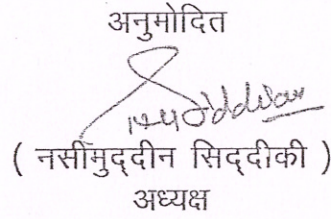 अनुमोदित
( नसीमुद्दीन सिद्दीकी )
अध्यक्ष